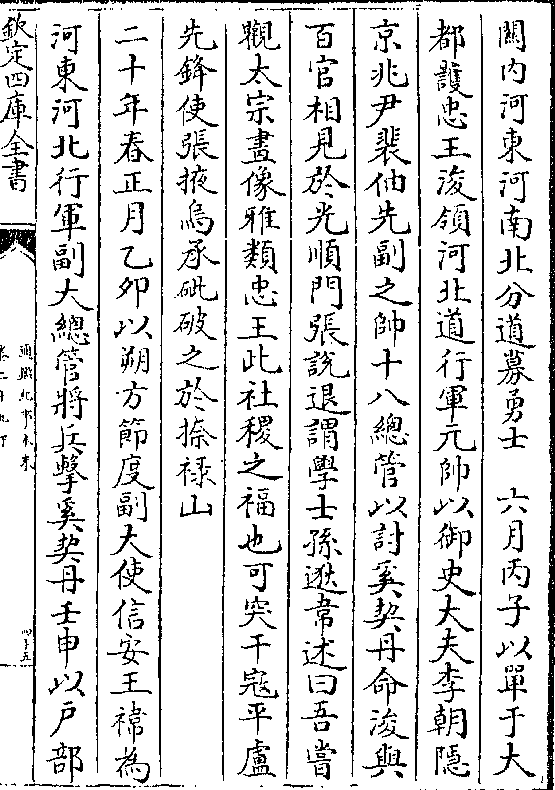 關内河東河南北分道募勇士　六月丙子以單于大
都護忠王浚領河北道行軍元帥以御史大夫李朝隱
京兆尹裴伷先副之帥十八總管以討奚契丹命浚與
百官相見於光順門張說退謂學士孫逖韋述曰吾嘗
觀太宗畫像雅類忠王此社稷之福也可突干寇平盧
先鋒使張掖烏承玼破之於捺祿山
二十年春正月乙卯以朔方節度副大使信安王禕為
河東河北行軍副大總管將兵擊奚契丹壬申以戶部
欽定四庫全書
通鑑紀事本末
四十五